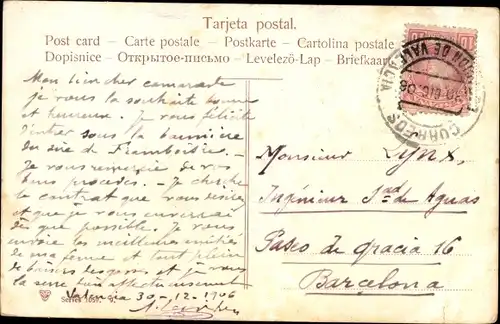 Tarjeta postal.
Post card - Carte postale - Postkarte - Cartolina postale
Dopisnice - Открытое-письмо - Levelező-Lap - Briefkaar
CORREOS
DE VALENCIA
Mon bien cher camarade
je vous la souhaite bonne
et heureuse. Je vous félicite
d'entrer sous la bannière
du sire de Framboisie. -
Je vous remercie de vos
bons procédés. - Je cherche
le contrat que vous desirez
et que je vous enverrai
dès que possible. J'vous
envoie les meilleures amitiés
de ma femme et tout plein
de baisers des gosses et je vous
la serre bien affectueusement
Valencia 30-12-1906
Series
Monsieur Lynx,
Ingénieur Sdad de Aguas
Paseo de gracia 16
Barcelona